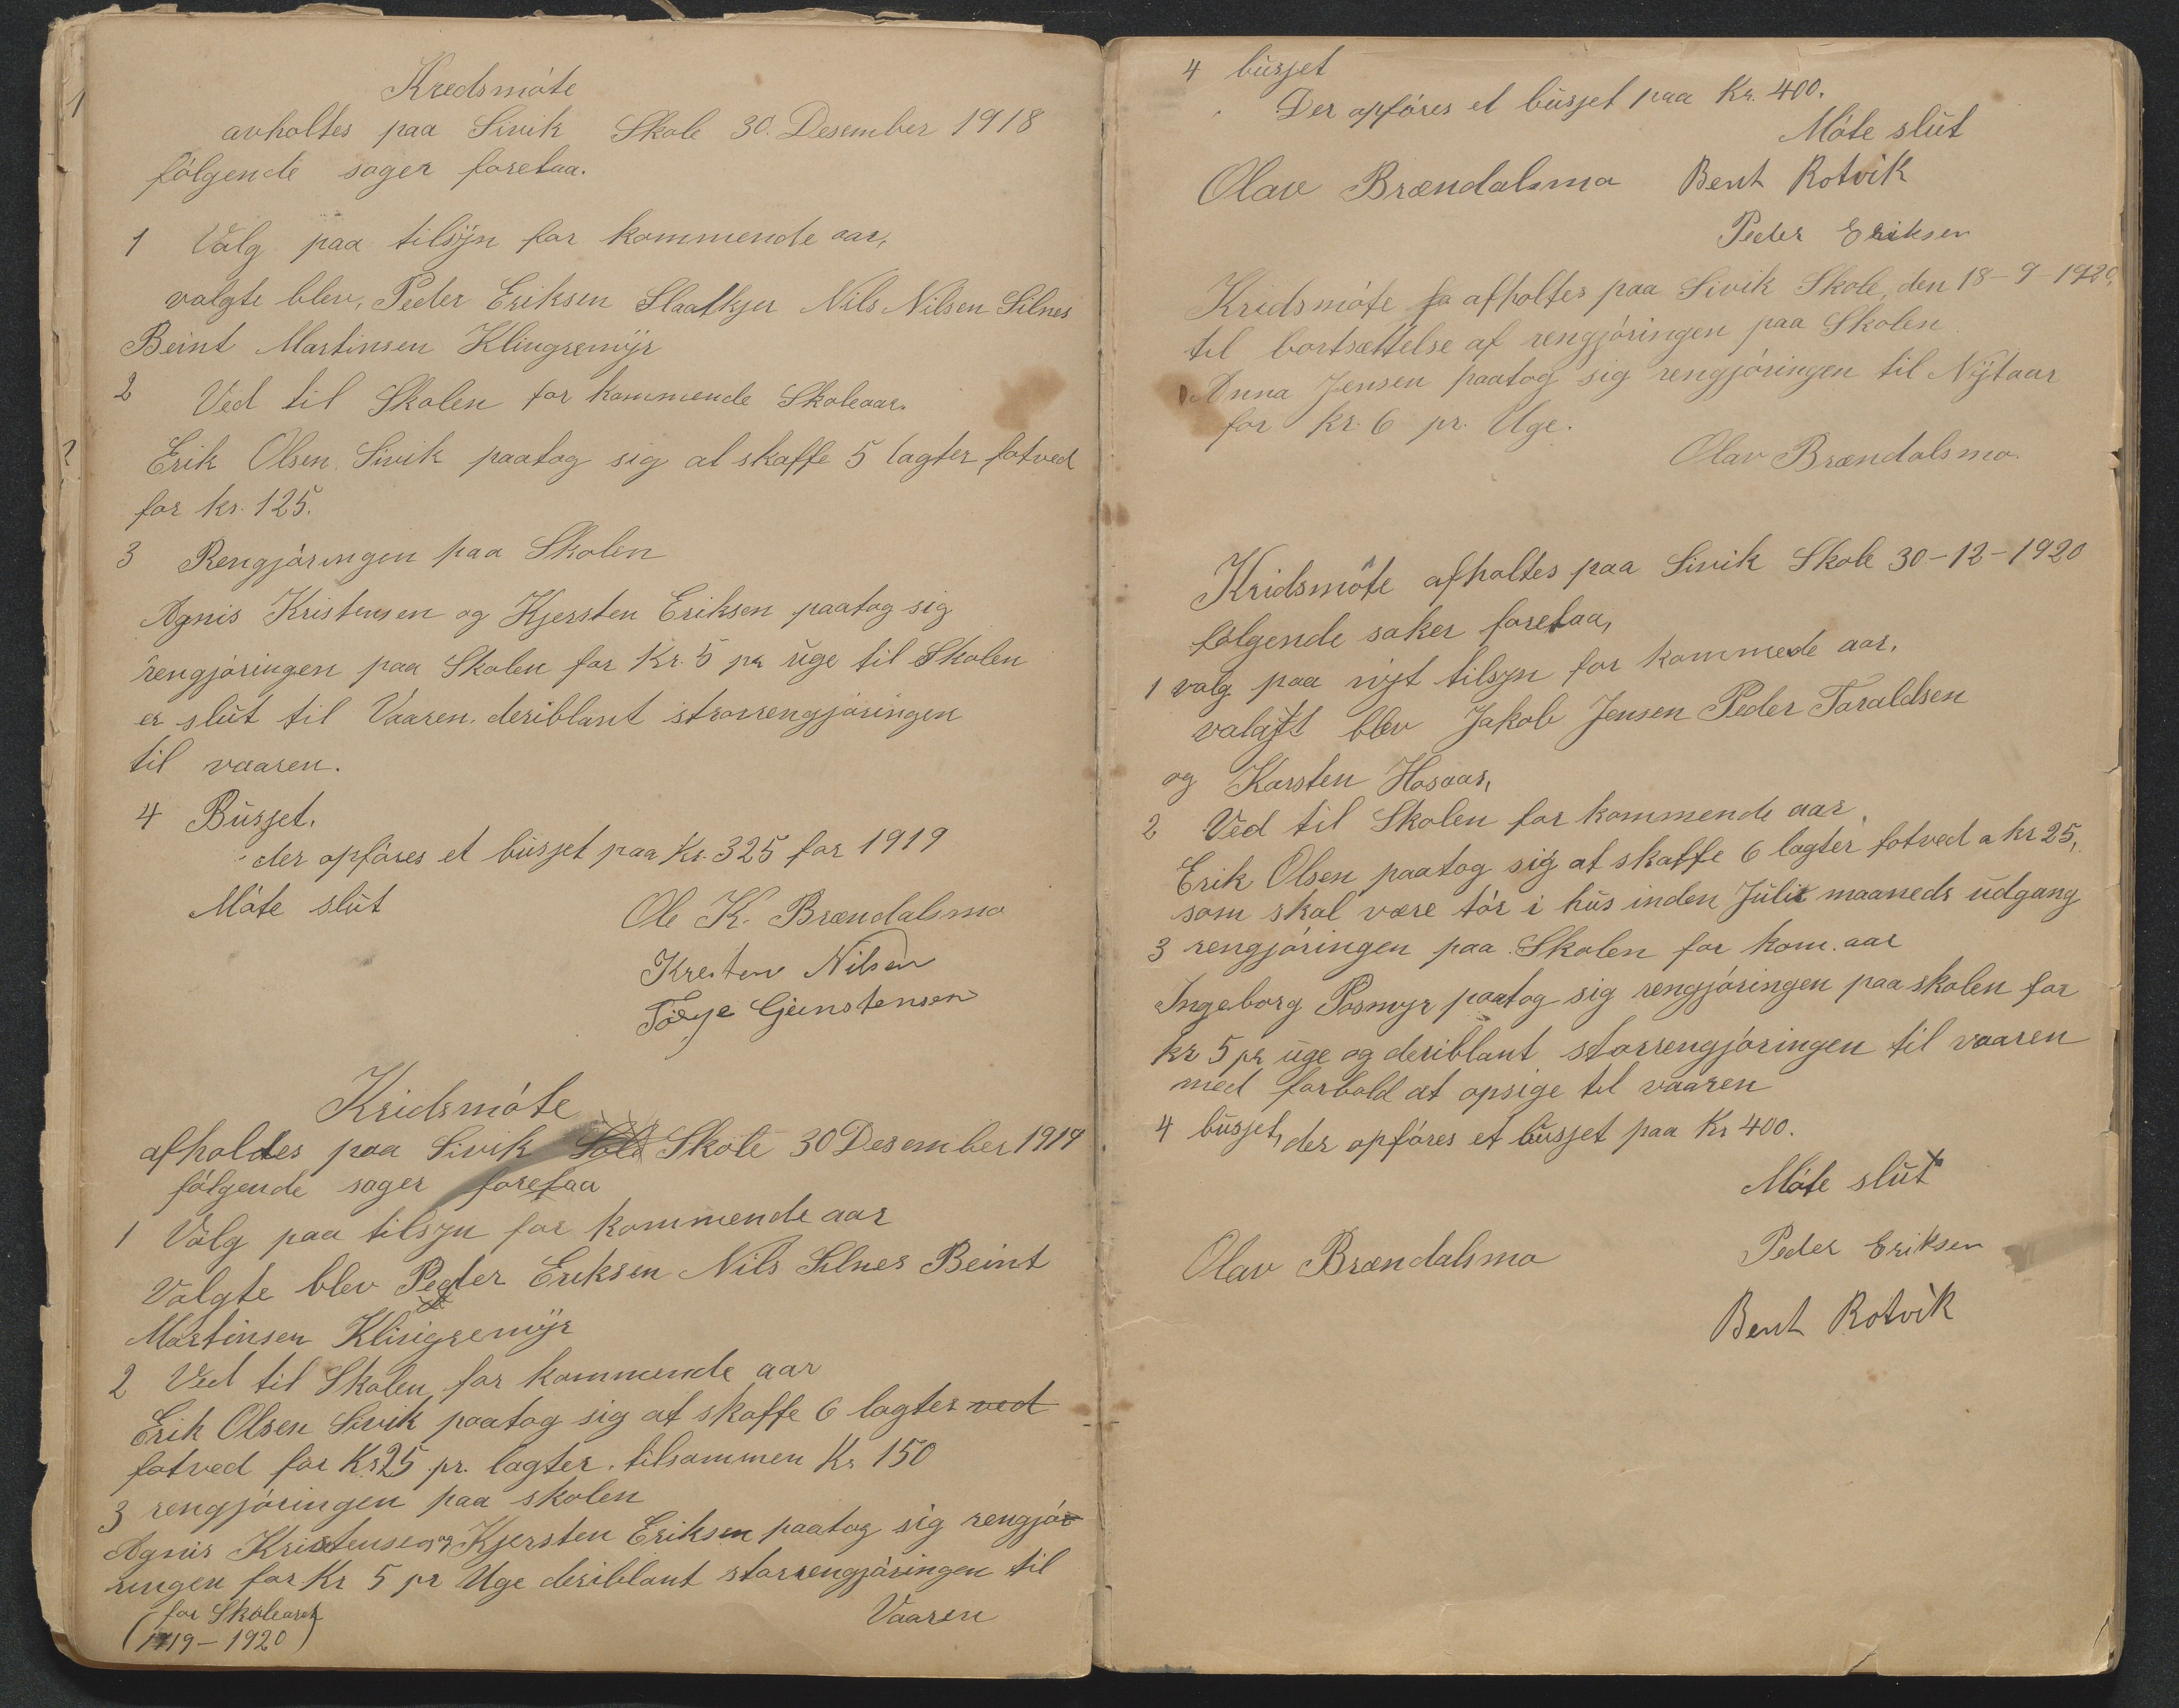 Kredsmóte
avholtes paa Sivik Skole 30. Desember 1918
fólgende sager foretaa.
1 Valg paa tilsÿn for kommende aar,
valgte blev, Peder Eriksen Slaatkjer Nils Nilsen Silnes
Beint Martinsen Klingremÿr
2 Ved til Skolen for kommende Skoleaar.
Erik Olsen Sivik paatog sig at skaffe 5 lagter fotved
for kr. 125.
3 Rengjóringen paa Skolen
Agnis Kristensen og Kjersten Eriksen paatog sig
rengjóringen paa Skolen for Kr. 5 pr uge til Skolen
er slut til Vaaren. deriblant storrengjóringen
til vaaren.
4 Busjet.
der opfóres et busjet paa Kr. 325 for 1919
Móte slut
Ole K. Brændalsmo
Kresten Nilsen
Tørje Gjeunstensen
Kridsmóte
afholdes paa Sivik Skole 30 Desember 1919
fólgende sager foretaa
1 Valg paa tilsyn for kommende aar
Valgte blev Peder Eriksen Nils Silnes Beint
Martinsen Klingremÿr
2 Ved til Skolen for kommende aar
Erik Olsen Sivik paatog sig at skaffe 6 lagter ved
fotved for Kr 25 pr. lagter. tilsammen Kr 150
3 rengjóringen paa skolen
Agnis Kristensen og Kjersten Eriksen paatog sig rengjór
ringen for Kr 5 pr Uge deriblant storrengjóringen til
Vaaren
(for Skolearet
1919 - 1920)
4 busjet
Der opfóres et busjet paa Kr. 400.
Móte slut
Olav Brændalsmo Bent Rotvik
Peder Eriksen
Kridsmóte afholtes paa Sivik Skole, den 18-9-1920,
til bortsættelse af rengjóringen paa Skolen
Anna Jensen paatog sig rengjóringen til Nÿtaar
for kr. 6 pr. Uge.
Olav Brændalsmo.
Kridsmóte afholtes paa Sivik Skole 30-12-1920
fólgende saker foretaa,
1 valg paa nyt tilsyn for kommede aar.
valgt blev Jakob Jensen Peder Taraldsen
og Karsten Hosaas,
2 Ved til Skolen for kommende aar
Erik Olsen paatog sig at skaffe 6 lagter fotved a kr 25,
som skal være tór i hus inden Juli maaneds udgang
3 rengjóringen paa Skolen for kom. aar
Ingeborg Posmyr paatog sig rengjóringen paa skolen for
kr 5 pr uge og deriblant storrengjóringen til vaaren
med forbold at opsige til vaaren
4 busjet, der opfóres et busjet paa Kr 400.
Móte slut
Olav Brændalsmo Peder Eriksen
Bent Rotvik